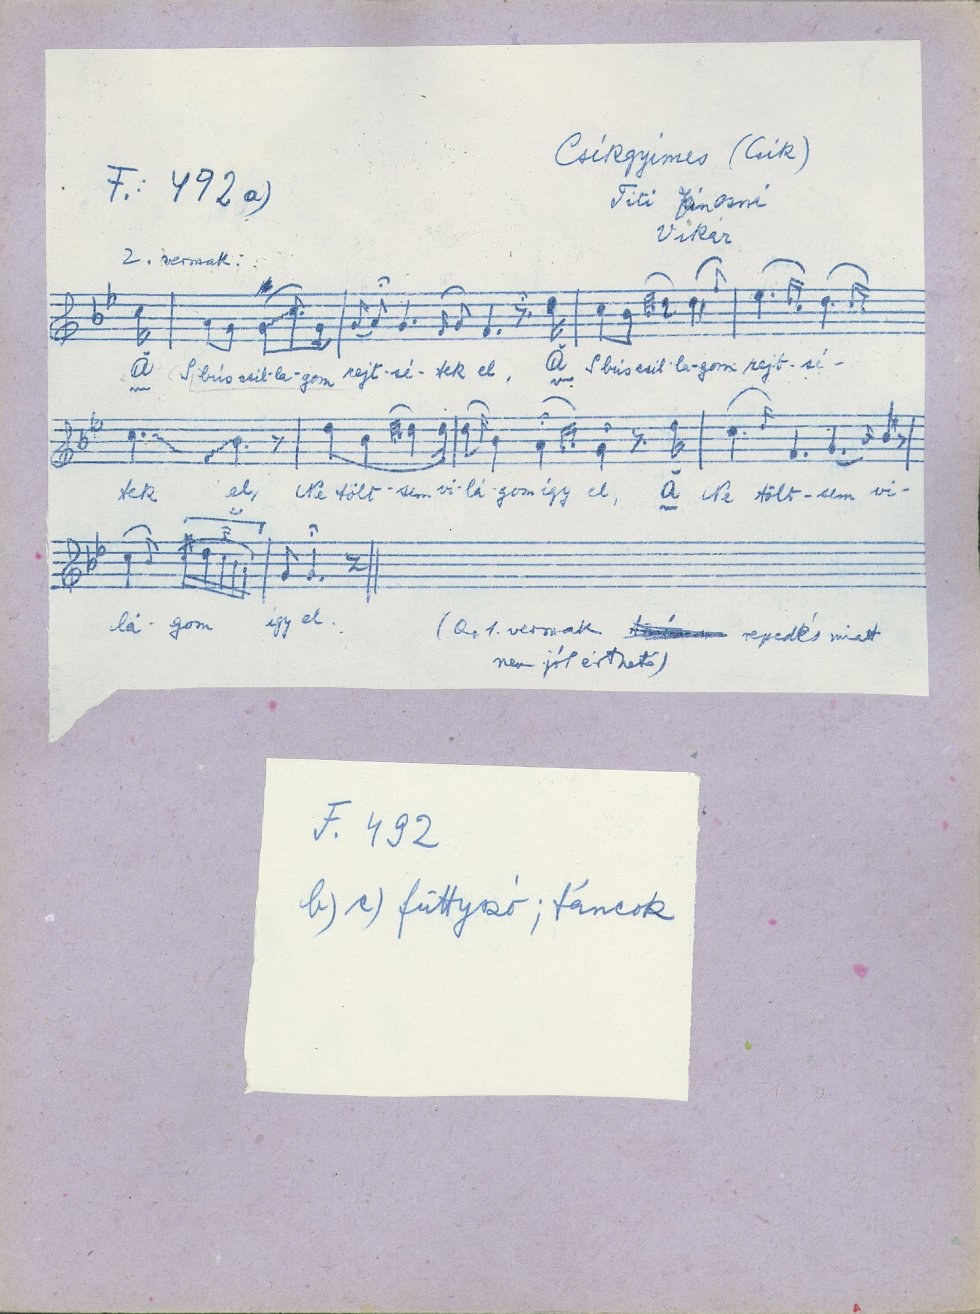 Csíkgyimes (Csík)
F.: 492 a)
Titi Jánosné
Vikár
2. versszak:
Ă S bús csil-la-gom rejt-sé-tek el, Ă S bús csil-la-gom rejt-sé-
tek el, Ne tölt-sem vi-lá-gom így el, Ă Ne tölt-sem vi-
lá-gom így el.
(Az 1. versszak repedés miatt
nem jól érthető)
F. 492
b) c) füttyszó; táncok